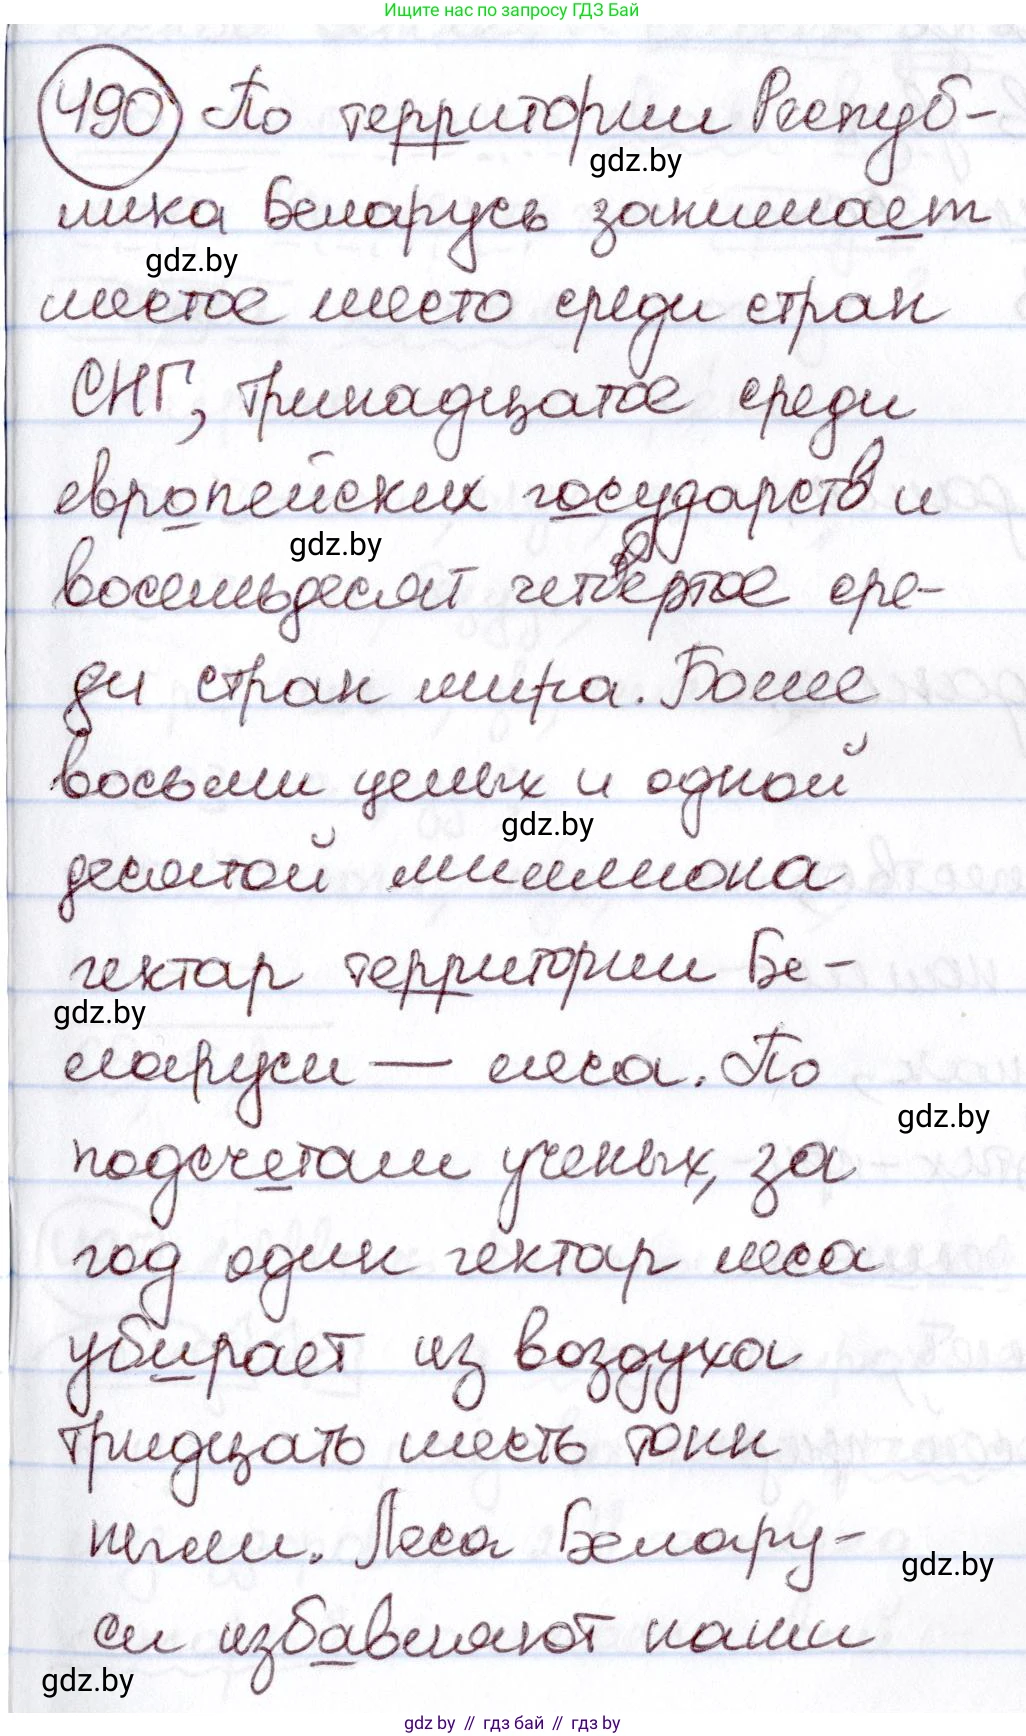 Ищите нас по запросу ГДЗ Бай
490 По территории Респуб-
gdz.by
лика Беларусь занимает
gdz.by
шестое место среди стран
СНГ, тринадцатое среди
европейских государств и
gdz.by
восемьдесят четвёртое сре-
ди стран мира. Более
восьми целых и одной
gdz.by
десятой миллиона
гектар территории Бе-
gdz.by
ларуси — леса. По
gdz.by
подсчетам ученых, за
год один гектар леса
убирает из воздуха
тридцать шесть тонн
пыли. Леса Белару-
gdz.by
си избавляют наши
gdz.by
gdz by // гдз бай // гдз by